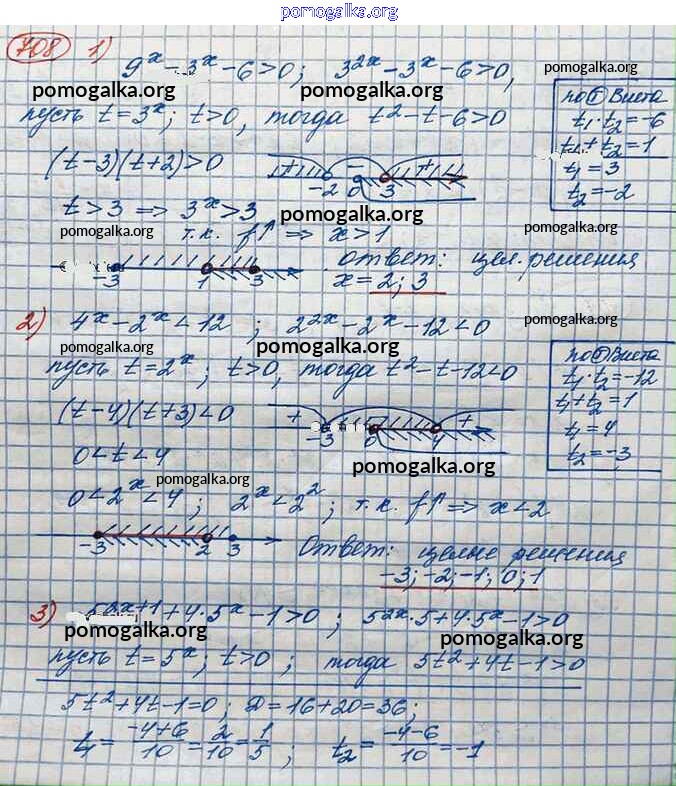 pomogalka.org
708 1)
9^x - 3^x - 6 > 0; 3^{2x} - 3^x - 6 > 0,
pomogalka.org
pomogalka.org pomogalka.org
пусть t = 3^x; t > 0, тогда t² - t - 6 > 0
по т Виета
t₁ · t₂ = -6
t₁ + t₂ = 1
t₁ = 3
t₂ = -2
(t - 3)(t + 2) > 0
+ - +
-2 0 3
t > 3 => 3^x > 3
pomogalka.org
pomogalka.org
pomogalka.org
т.к. f↑ => x > 1
-3 1 3
ответ: цел. решения
x = 2; 3
2) 4^x - 2^x < 12; 2^{2x} - 2^x - 12 < 0
pomogalka.org
pomogalka.org pomogalka.org
pomogalka.org
пусть t = 2^x; t > 0, тогда t² - t - 12 < 0
по т Виета
t₁ · t₂ = -12
t₁ + t₂ = 1
t₁ = 4
t₂ = -3
(t - 4)(t + 3) < 0
+ +
-3 0 4
0 < t < 4
pomogalka.org
pomogalka.org
0 < 2^x < 4; 2^x < 2²; т.к. f↑ => x < 2
-3 2 3
Ответ: целые решения
-3; -2; -1; 0; 1
3) 5^{2x+1} + 4 · 5^x - 1 > 0; 5^{2x} · 5 + 4 · 5^x - 1 > 0
pomogalka.org pomogalka.org
пусть t = 5^x; t > 0; тогда 5t² + 4t - 1 > 0
5t² + 4t - 1 = 0; D = 16 + 20 = 36;
t₁ = (-4+6)/10 = 2/10 = 1/5; t₂ = (-4-6)/10 = -1